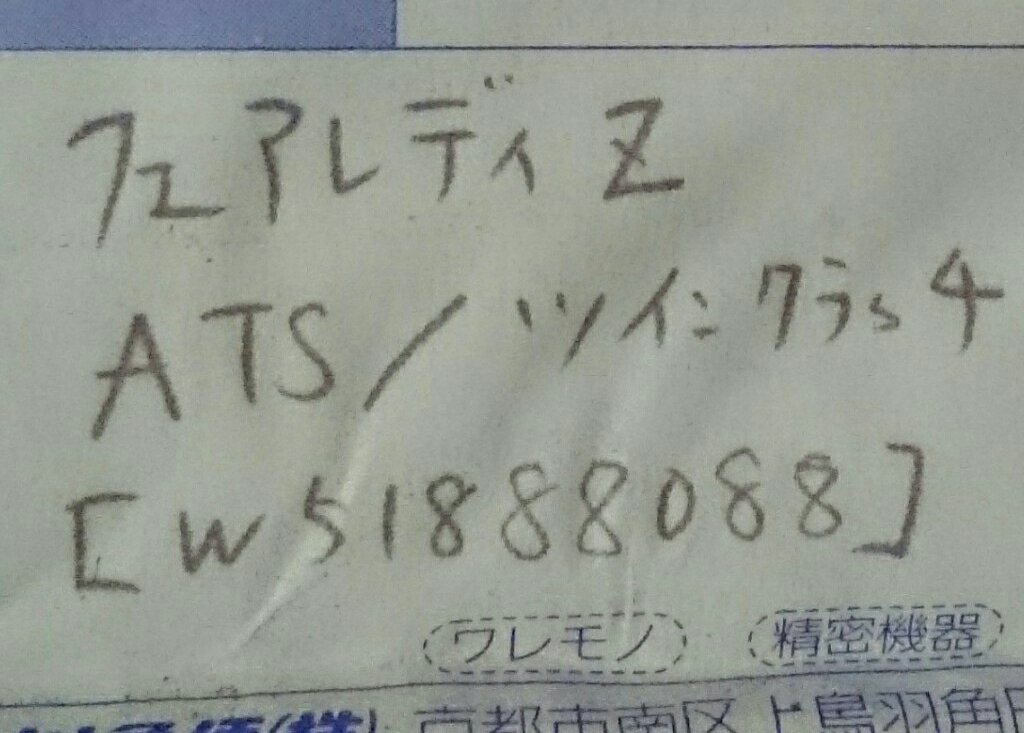 フェアレディ Z
ATS/ツインクラッチ
[W51888088]
ワレモノ 精密機器
(株) 京都市南区上鳥羽角